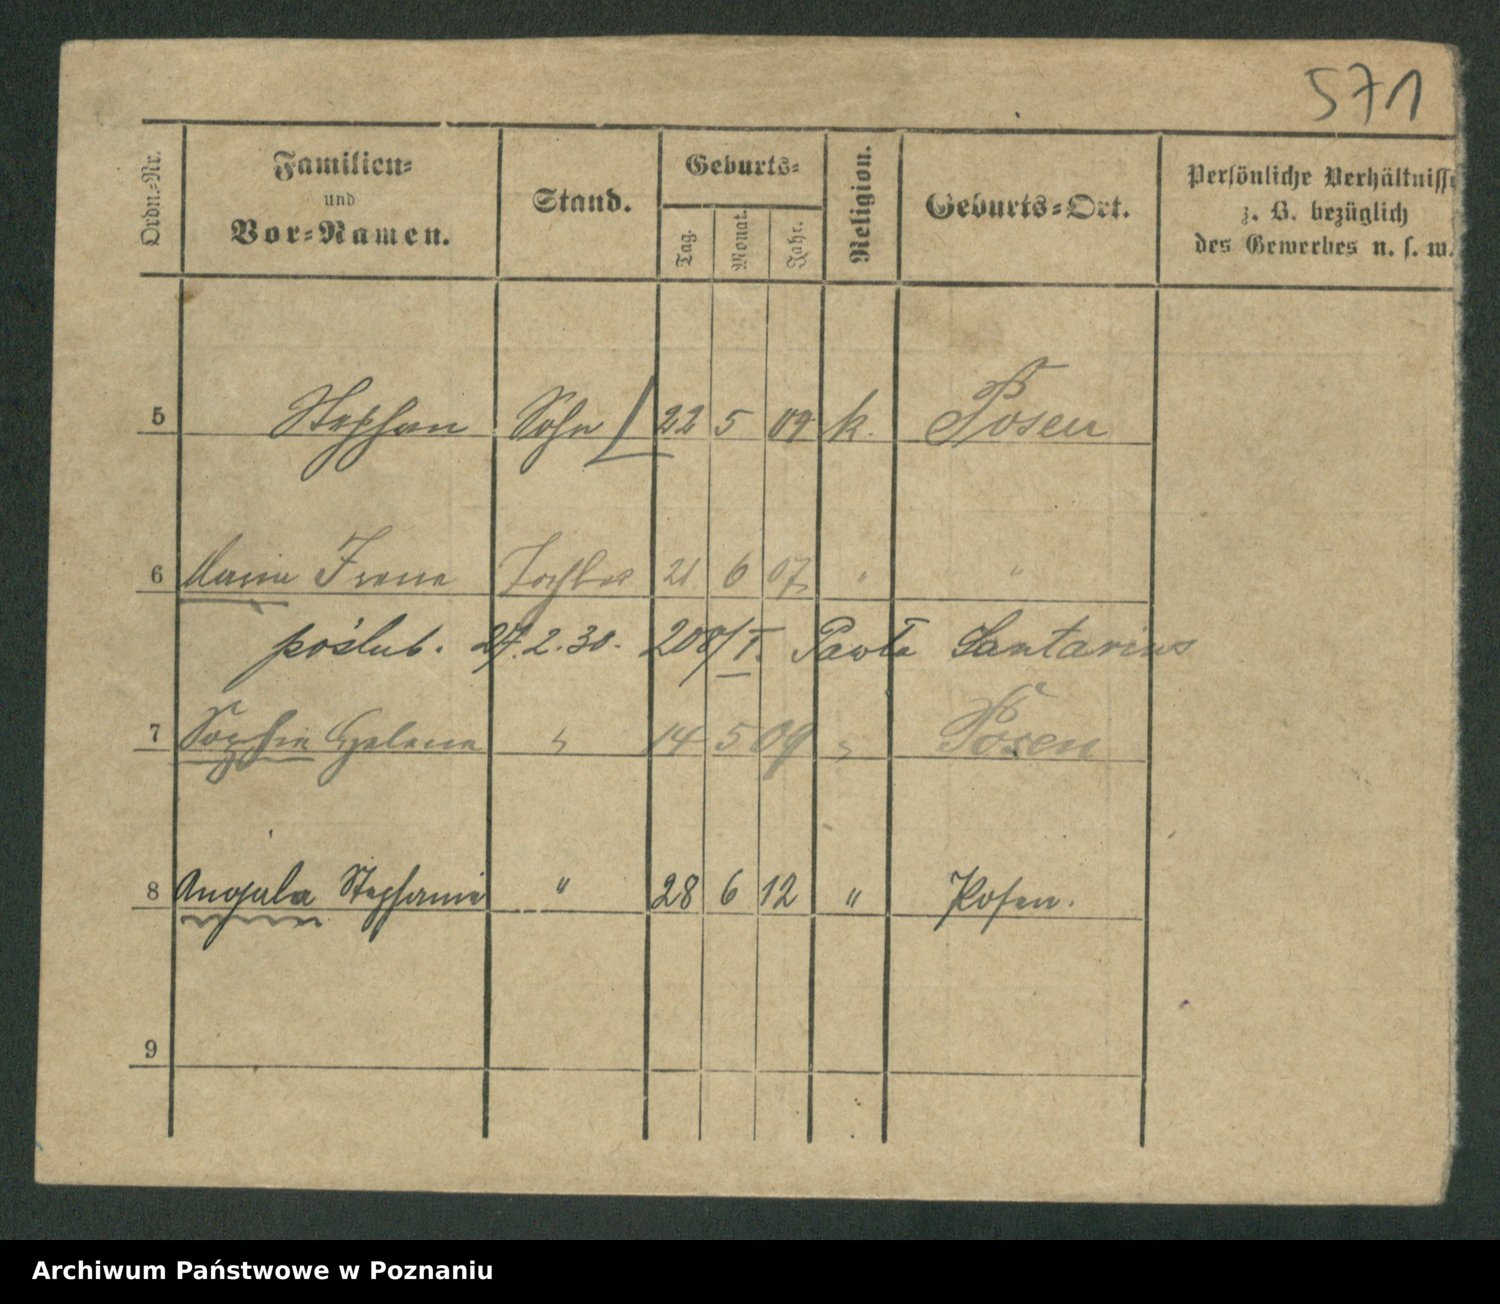 571
Ordn=Nr. Familien= und Vor=Namen. Stand. Geburts= Tag. Monat. Jahr. Religion. Geburts=Ort. Persönliche Verhältnisse z. B. bezüglich des Gewerbes u. s. w.
5 Stephan Sohn 22 5 09 k. Posen
6 Maria Irene Tochter 21 6 07 " "
poślub. 27.2.30. 208/I. Pawła Santarius
7 Sophie Helene " 14 5 09 " Posen
8 Angela Stephanie " 28 6 12 " Posen.
9
Archiwum Państwowe w Poznaniu